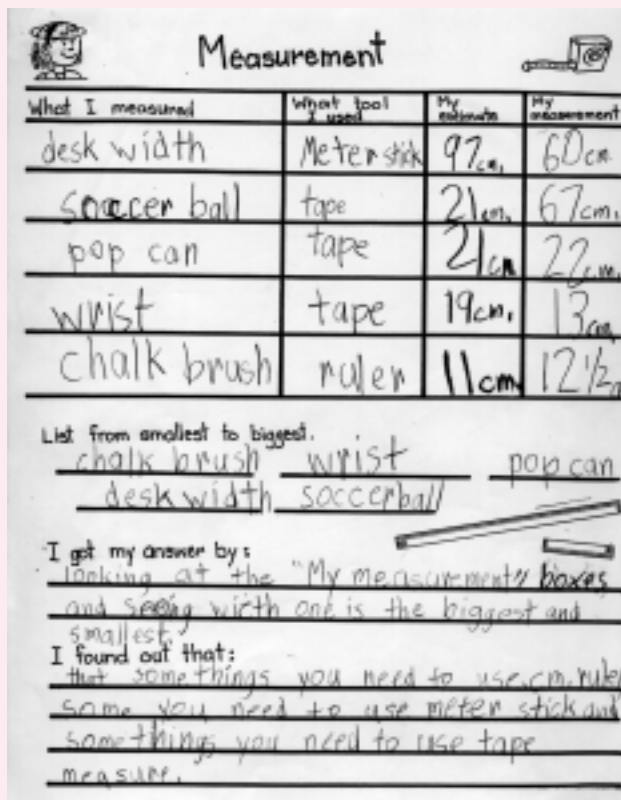 Measurement
What I measured What tool I used My estimate My measurement
desk width Meter stick 97cm. 60cm
soccer ball tape 21cm. 67cm.
pop can tape 21cm 22cm.
wrist tape 19cm. 13cm
chalk brush ruler 11cm 12 1/2
List from smallest to biggest.
chalk brush wrist pop can
desk width soccerball
I got my answer by:
looking at the "My measurement" boxes
and seeing wirth one is the biggest and
smallest.
I found out that:
that somethings you need to use.cm.ruler
some you need to use meter stick and
somethings you need to use tape
measure.